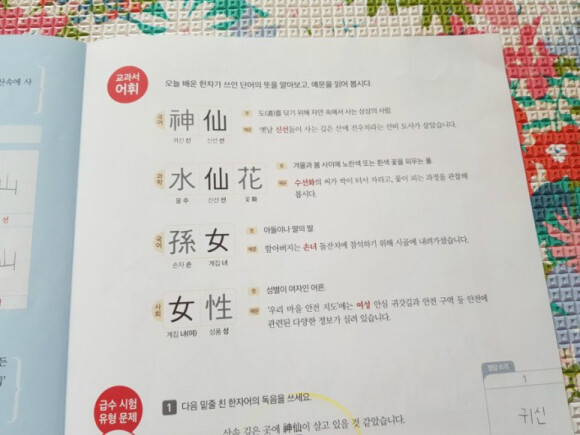 교과서
어휘
오늘 배운 한자가 쓰인 단어의 뜻을 알아보고, 예문을 읽어 봅시다.
국어
神 仙
귀신 신 신선 선
뜻 도(道)를 닦기 위해 자연 속에서 사는 상상의 사람.
예문 옛날 신선들이 사는 깊은 산에 전우치라는 선비 도사가 살았습니다.
과학
水 仙 花
물 수 신선 선 꽃 화
뜻 겨울과 봄 사이에 노란색 또는 흰색 꽃을 피우는 풀.
예문 수선화의 씨가 싹이 터서 자라고, 꽃이 피는 과정을 관찰해
봅시다.
국어
孫 女
손자 손 계집 녀
뜻 아들이나 딸의 딸.
예문 할아버지는 손녀 돌잔치에 참석하기 위해 시골에 내려가셨습니다.
사회
女 性
계집 녀(여) 성품 성
뜻 성별이 여자인 어른.
예문 '우리 마을 안전 지도'에는 여성 안심 귀갓길과 안전 구역 등 안전에
관련된 다양한 정보가 실려 있습니다.
급수 시험
유형 문제
1 다음 밑줄 친 한자어의 독음을 쓰세요.
산속 깊은 곳에 神仙이 살고 있을 것 같았습니다.
1
귀신
산속에 사
선